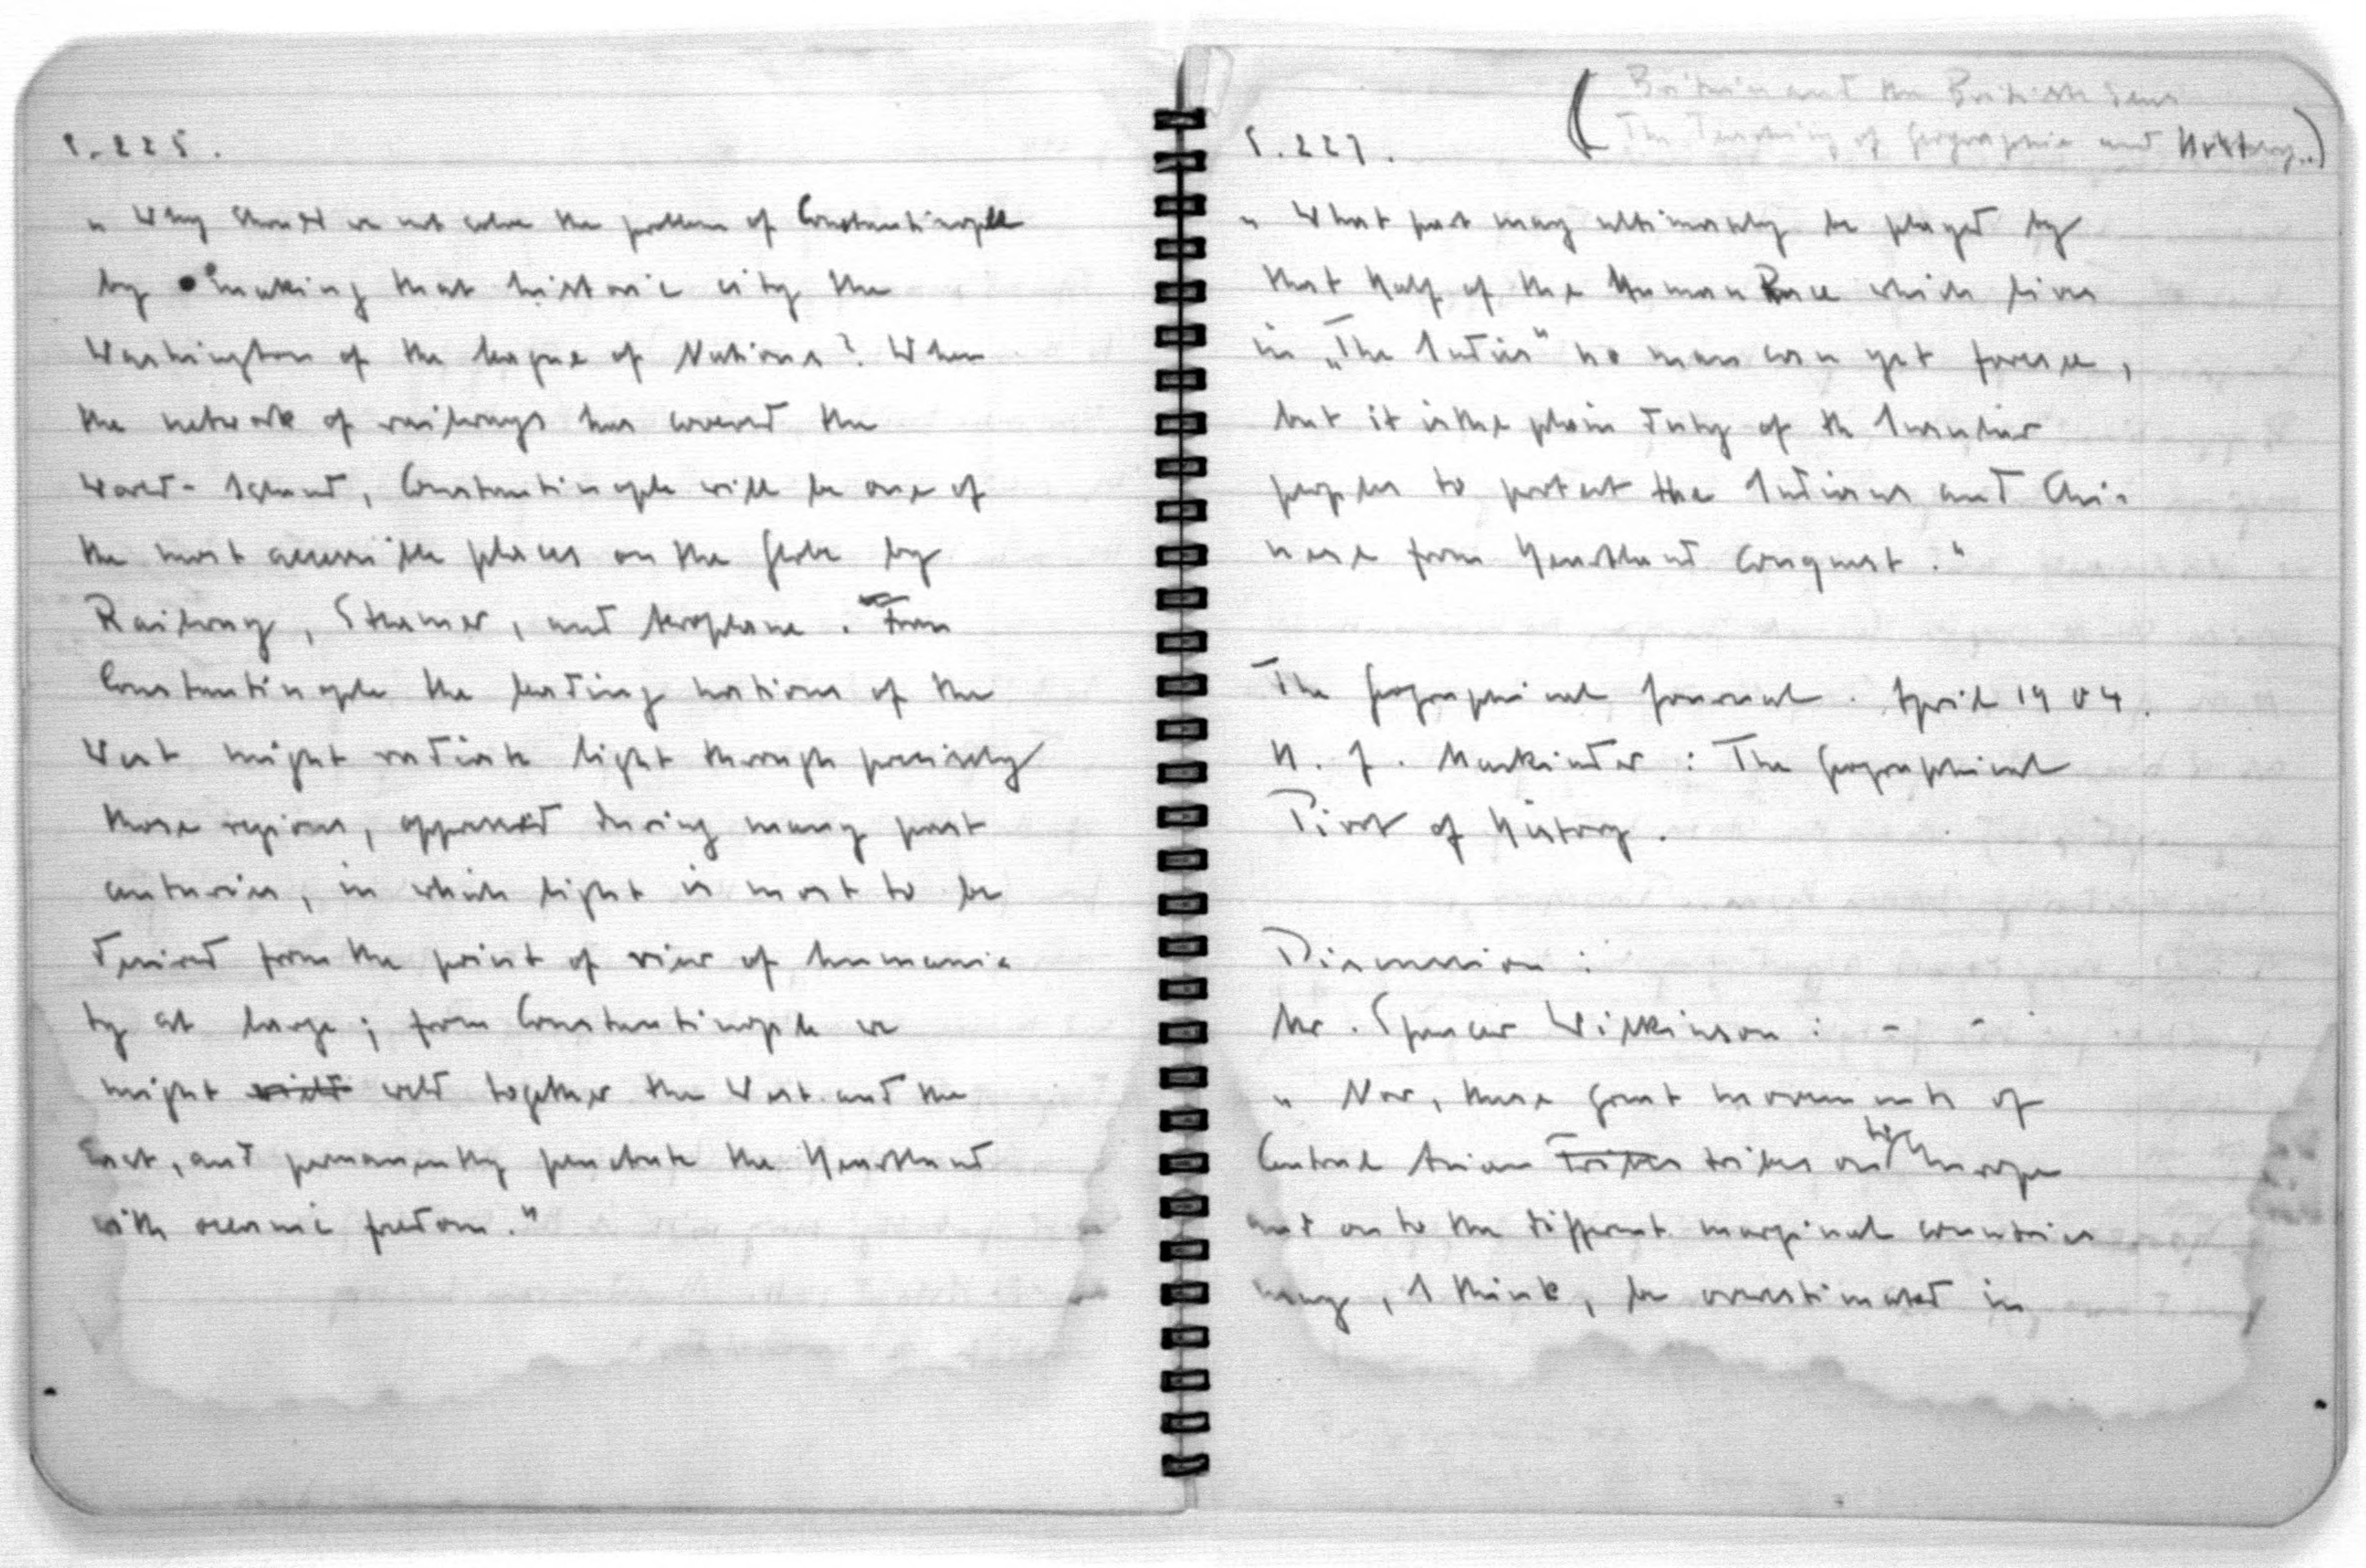 S. 225.
„ Why should we not solve the problem of Constantinople
by making that historic city the
Washington of the League of Nations? When
the network of railways has covered the
World-Island, Constantinople will be one of
the most accessible places on the Globe by
Railway, Steamer, and Aeroplane. From
Constantinople the leading nations of the
West might radiate light through precisely
those regions, oppressed during many past
centuries, in which light is most to be
desired from the point of view of humani-
ty at large; from Constantinople we
might weld together the West and the
East, and permanently penetrate the Heartland
with oceanic freedom."
( Britain and the British Seas
The Teaching of Geographie and History..)
S. 227.
„ What part may ultimately be played by
that half of the Human Race which lives
in „The Indies" no man can yet foresee,
but it is the plain duty of the Insular
peoples to protect the Indians and Chi-
nese from Heartland Conquest."
The Geographical Journal. April 1904.
H. J. Mackinder: The Geographical
Pivot of History.
Discussion:
Mr. Spencer Wilkinson: - -
„ Now, these great movements of
Central Asian Tribes tribes on to Europe
and on to the different marginal countries
may, I think, be overestimated in